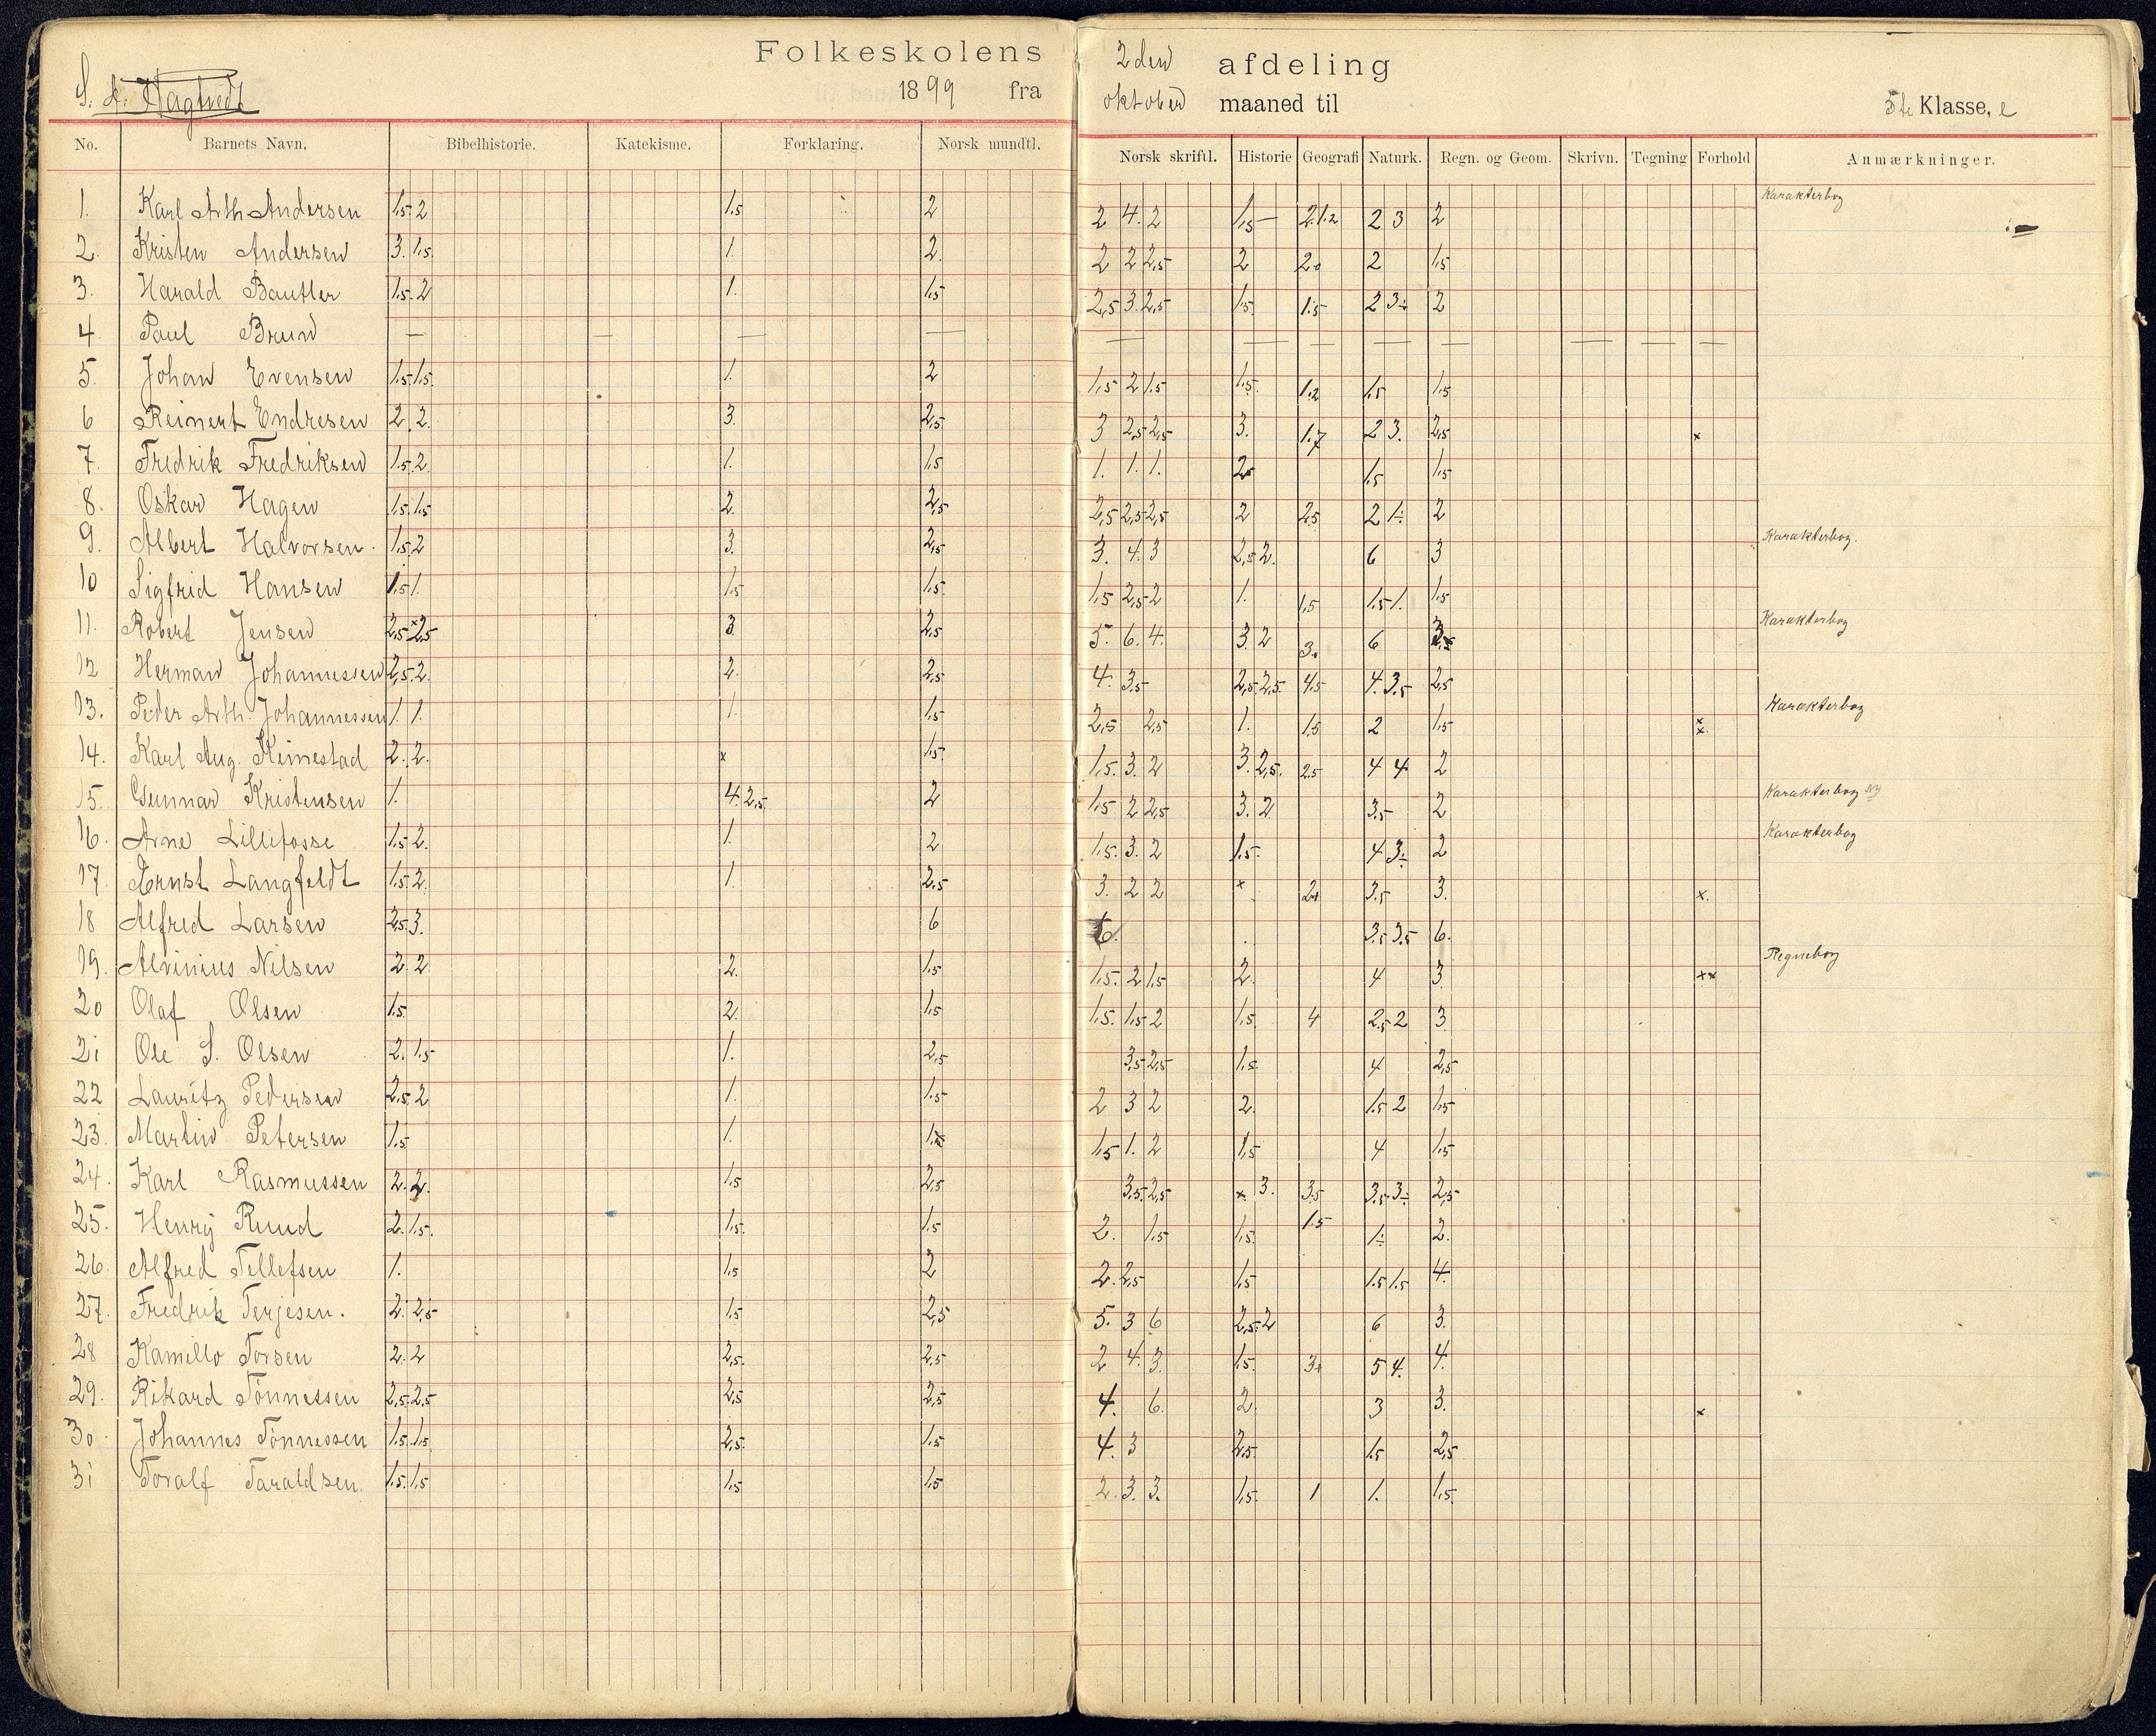 Folkeskolens 2den afdeling
S. A. Hagtvedt 1899 fra oktober maaned til 5te Klasse, e
No. Barnets Navn. Bibelhistorie. Katekisme. Forklaring. Norsk mundtl. Norsk skriftl. Historie Geografi Naturk. Regn. og Geom. Skrivn. Tegning Forhold Anmærkninger.
1. Karl Arth Andersen 1.5 2 1.5 2 2 4. 2 1.5 — 2.1.2 2 3 2 Karakterbog
2. Kristen Andersen 3. 1.5. 1. 2. 2 2 2,5 2 2 1.5
3. Harald Bautler 1.5. 2 1. 1.5 2,5 3. 2,5 1.5 1.5 2 3 2
4. Paul Brun — — — — — — — — — — — —
5. Johan Evensen 1.5 1.5. 1. 2 1,5 2 1.5 1.5. 1.2 1.5 1.5
6 Reinert Endresen 2. 2. 3. 2,5 3 2,5 2,5 3. 1.7 2 3. 2,5 x
7. Fredrik Fredriksen 1.5. 2. 1. 1.5 1. 1. 1. 2 1.5 1.5
8. Oskar Hagen 1.5 1.5 2. 2,5 2,5 2,5 2,5 2 2.5 2 1 2
9. Albert Halvorsen 1.5 2 3. 2,5 3. 4. 3 2,5 2. 6 3 Karakterbog.
10 Sigfrid Hansen 1.5 1. 1.5 1.5. 1.5 2,5 2 1. 1.5 1.5 1. 1.5
11. Robert Jensen 2,5 x 2,5 3. 2,5 5. 6. 4. 3. 2 3. 6 Karakterbog
12 Herman Johannessen 2,5. 2. 2. 2,5 4. 3.5 2,5 2,5. 4,5 4. 3.5 2,5
13. Peder Arth. Johannessen 1. 1. 1. 1.5 2,5 2,5 1. 1.5 2 1.5 x x. Karakterbog
14. Karl Aug. Keimestad 2. 2. x 1.5 1.5. 3. 2 3. 2,5. 2.5 4 4 2
15. Gunnar Kristensen 1. 4. 2,5. 2 1.5 2 2,5 3. 2 3.5 2 Karakterbog
16. Arne Lillefosse 1.5 2. 1. 2 1.5. 3. 2 1.5. 4 3 2 Karakterbog
17. Ernst Langfeldt 1.5 2. 1. 2,5 3. 2 2 x 2 3.5 3. x.
18 Alfred Larsen 2,5 3. 6 6. 3.5 3.5 6.
19. Alvinius Nilsen 2. 2 2. 1.5 1.5. 2 1.5 2. 4 3. xx Regnebog
20 Olaf Olsen 1.5. 2. 1.5 1.5. 1.5 2 1.5. 4 2.5 2 3.
21 Ole S. Olsen 2. 1.5 1. 2,5 3.5 2,5 1.5. 4 2,5
22 Lauritz Pedersen 2,5. 2 1. 1.5 2 3 2 2. 1.5 2 1.5
23. Martin Petersen 1.5. 1. 1.5 1. 2 1.5 4 1.5
24. Karl Rasmussen 2. 2. 1.5 2,5 3.5. 2,5 x. 3. 3.5 3.5 3 2,5
25. Henry Ruud 2. 1.5. 1.5. 1.5 2. 1.5 1.5. 1.5 1 2.
26. Alfred Tellefsen 1. 1.5 2 2. 2,5 1.5 1.5 1.5 4.
27. Fredrik Terjesen. 2. 2,5 1.5 2,5 5. 3 6 2,5. 2 6 3.
28 Kamillo Torsen 2. 2 2,5. 2,5 2 4. 3. 1.5. 3 5 4. 4.
29. Rikard Tönnessen 2,5. 2,5 2,5 2,5 4. 6. 2. 3 3. x
30 Johannes Tönnessen 1.5. 1.5 2,5. 1.5 4. 3 2,5. 1.5 2,5
31 Toralf Taraldsen. 1.5. 1.5 1.5 1.5 2. 3. 3. 1.5. 1 1. 1.5.